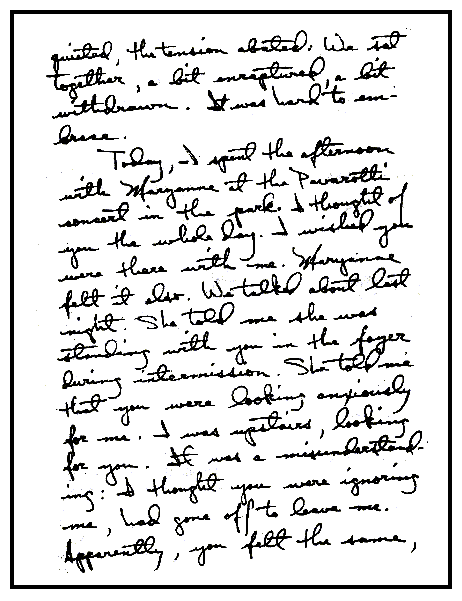 quieted, the tension abated. We sat
together, a bit enraptured, a bit
withdrawn. It was hard to em-
brace.
Today, I spent the afternoon
with Maryanne at the Pavarotti
concert in the park. I thought of
you the whole day. I wished you
were there with me. Maryanne
felt it also. We talked about last
night. She told me she was
standing with you in the foyer
during intermission. She told me
that you were looking anxiously
for me. I was upstairs, looking
for you. It was a misunderstand-
ing: I thought you were ignoring
me, had gone off to leave me.
Apparently, you felt the same,